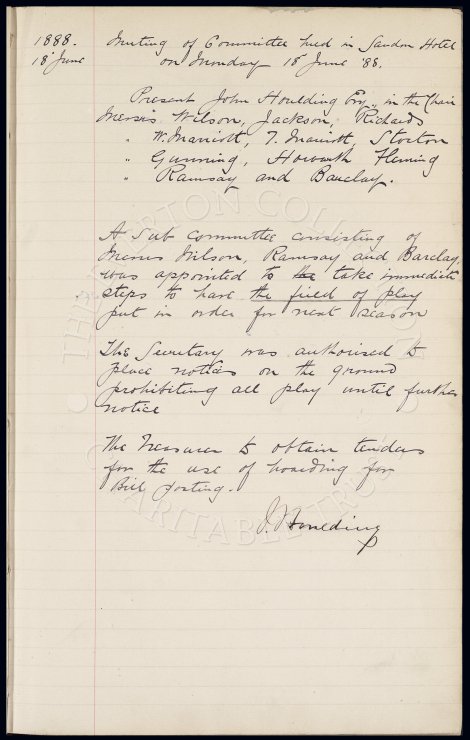 1888.
18 June
Meeting of Committee held in Sandon Hotel
on Monday 18 June '88.
Present John Houlding Esq., in the Chair
Messrs Wilson, Jackson, Richards
" W. Marriott, T. Marriott, Stoxton
" Gunning, Howarth Fleming
" Ramsay and Barclay.
A Sub Committee consisting of
Messrs Wilson, Ramsay and Barclay,
was appointed to the take immediate
steps to have the field of play
put in order for next season
The Secretary was authorised to
place notices on the ground
prohibiting all play until further
notice
The Treasurer to obtain tenders
for the use of hoarding for
Bill posting.
J. Houlding
THE EVERTON COLLECTION
CHARITABLE TRUST